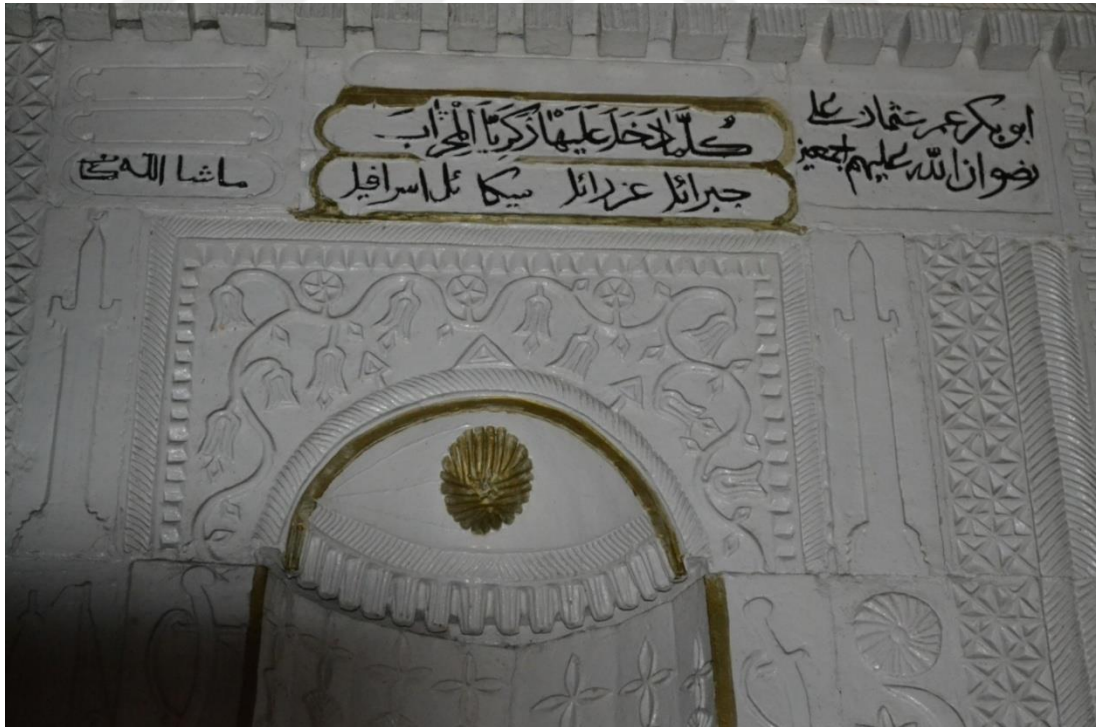 ابو بكر عمر عثمان علي
رضوان الله عليهم اجمعين
كُلَّمَا دَخَلَ عَلَيْهَا زَكَرِيَّا الْمِحْرَابَ
جبرائل عزرائل ميكائل اسرافيل
ماشا الله